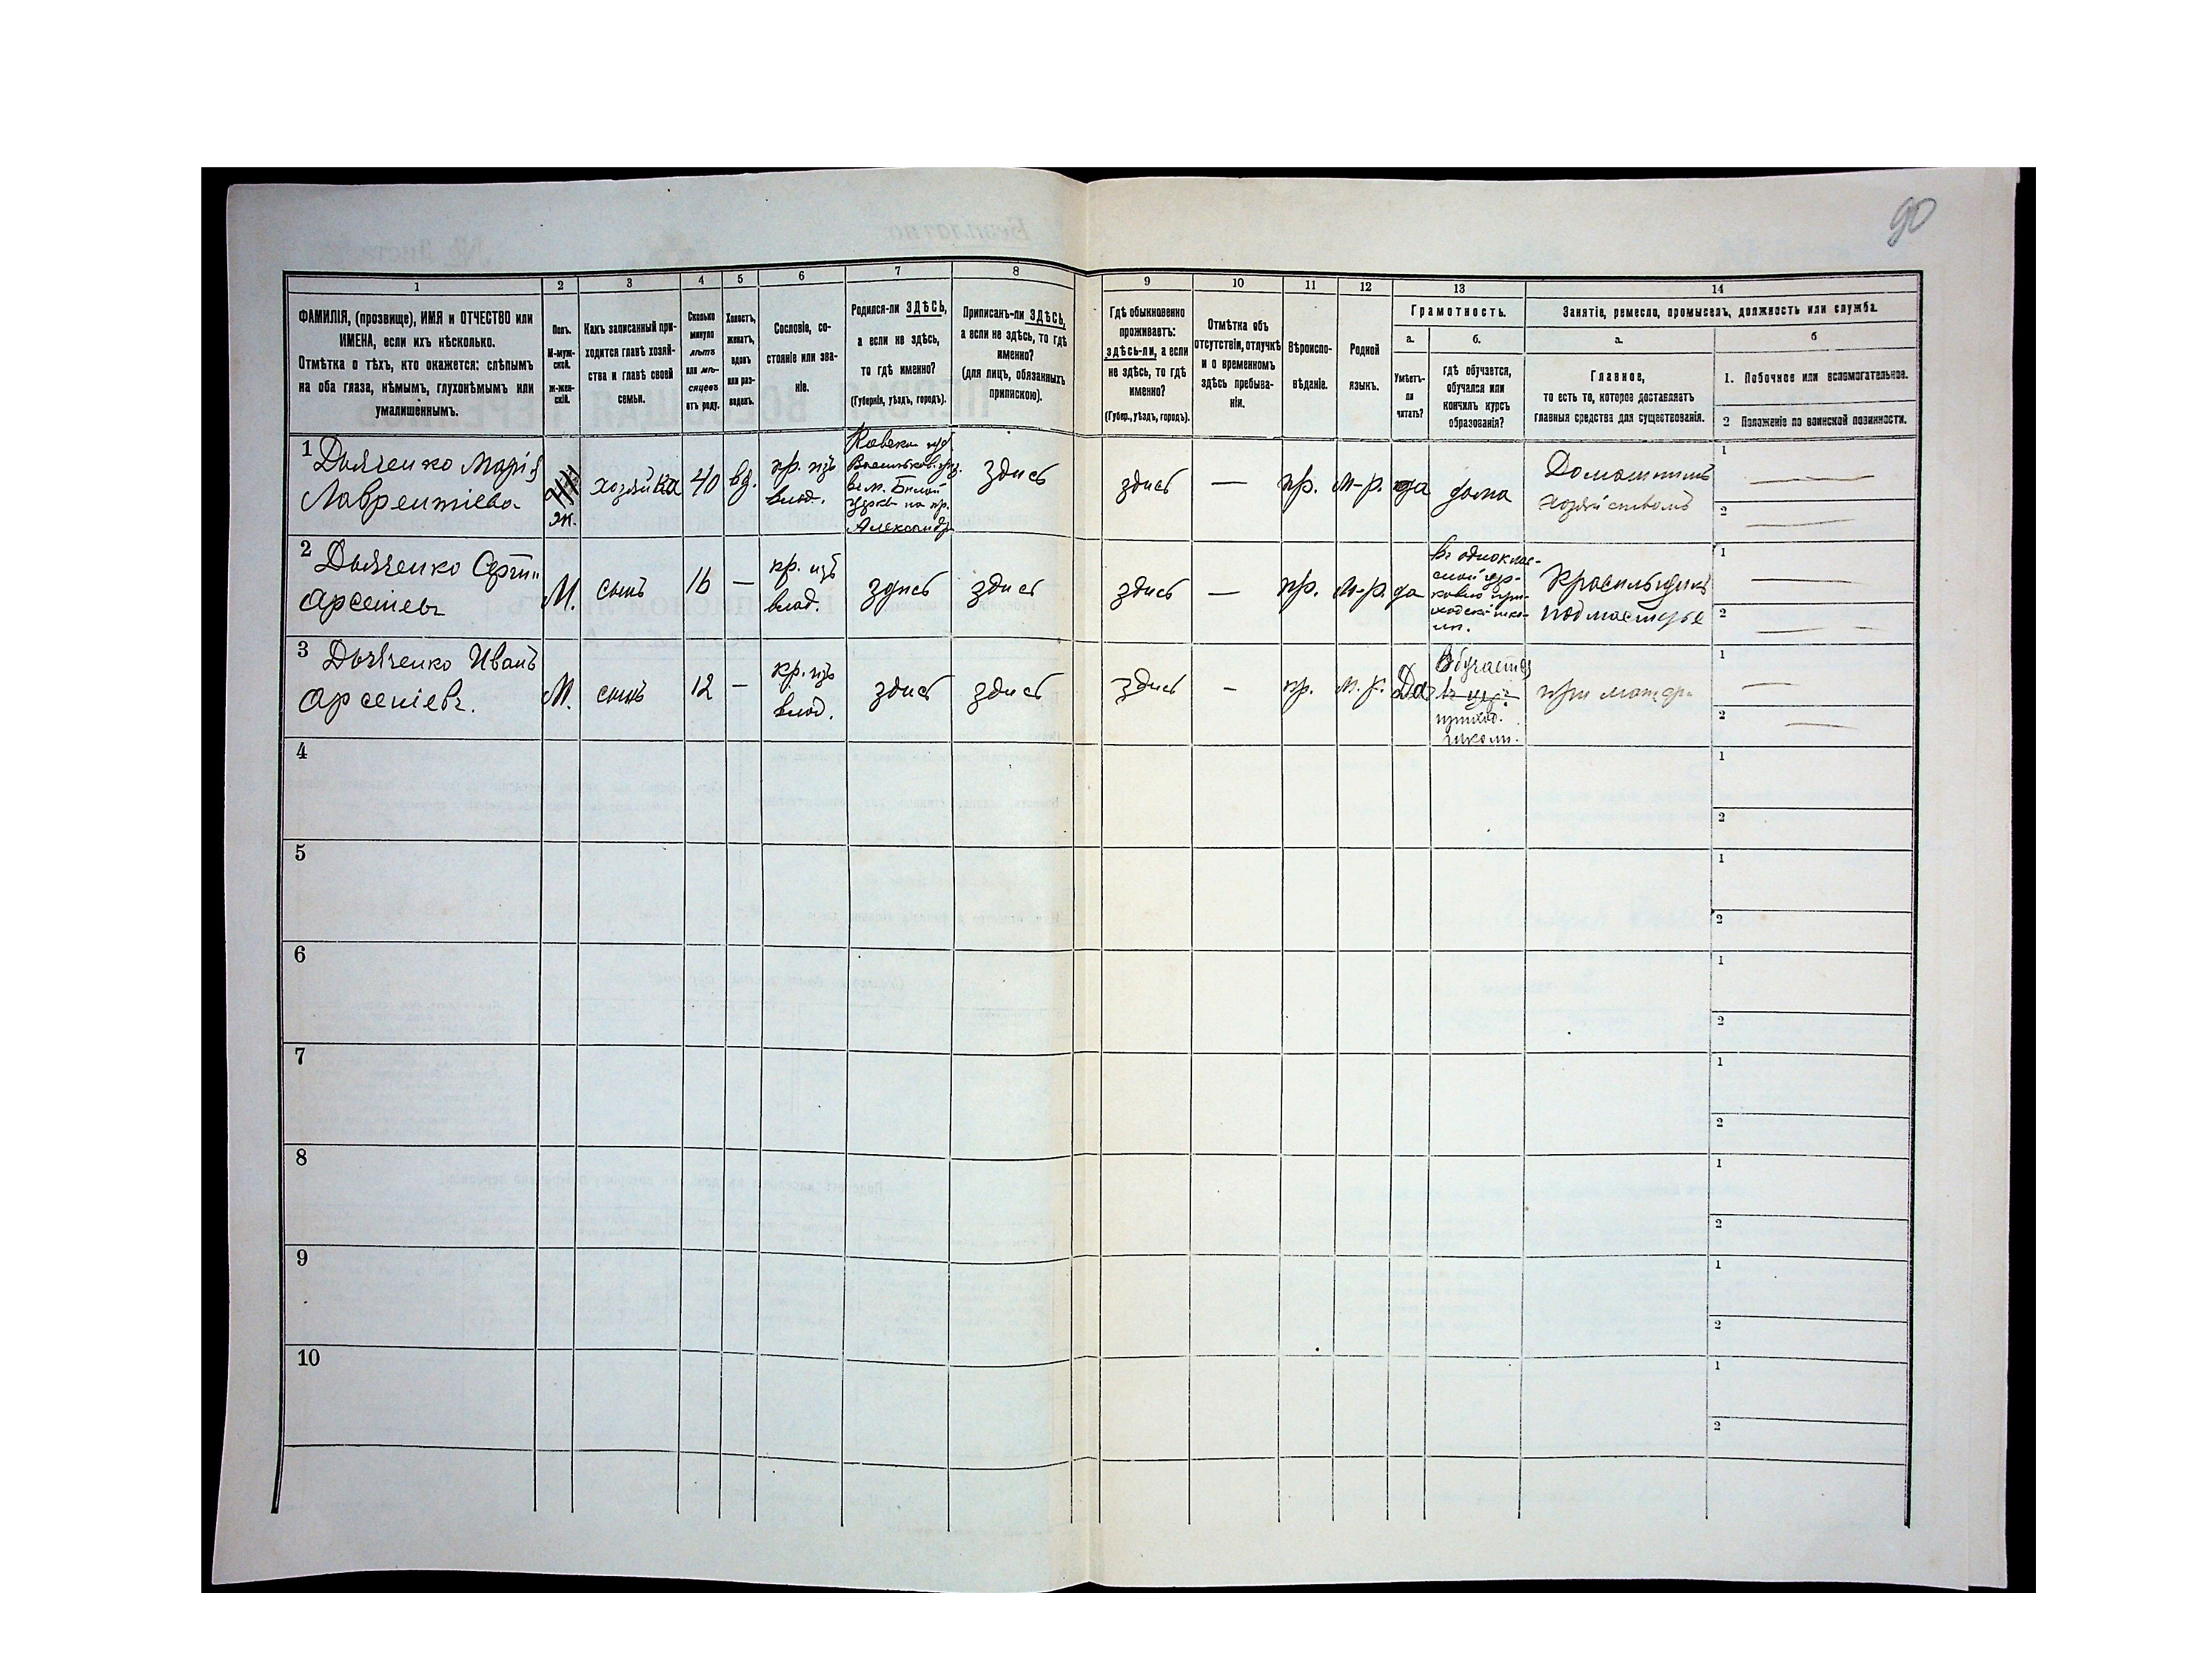 90
1
2
3
4
5
6
7
8
9
10
11
12
13
14
ФАМИЛІЯ, (прозвище), ИМЯ и ОТЧЕСТВО или
ИМЕНА, если ихъ нѣсколько.
Отмѣтка о тѣхъ, кто окажется: слѣпымъ
на оба глаза, нѣмымъ, глухонѣмымъ или
умалишеннымъ.
Полъ.
М-муж-
ской.
ж-жен-
скій.
Какъ записанный при-
ходится главѣ хозяй-
ства и главѣ своей
семьи.
Сколько
минуло
лѣтъ
или мѣ-
сяцевъ
отъ роду.
Холостъ,
женатъ,
вдовъ
или раз-
веденъ.
Сословіе, со-
стояніе или зва-
ніе.
Родился-ли ЗДѢСЬ,
а если не здѣсь,
то гдѣ именно?
(Губернія, уѣздъ, городъ).
Приписанъ-ли ЗДѢСЬ,
а если не здѣсь, то гдѣ
именно?
(для лицъ, обязанныхъ
припискою).
Гдѣ обыкновенно
проживаетъ:
здѣсь-ли, а если
не здѣсь, то гдѣ
именно?
(Губер., уѣздъ, городъ).
Отмѣтка объ
отсутствіи, отлучкѣ
и о временномъ
здѣсь пребыва-
ніи.
Вѣроиспо-
вѣданіе.
Родной
языкъ.
Грамотность.
а.
б.
Умѣетъ-
ли
читать?
гдѣ обучается,
обучался или
кончилъ курсъ
образованія?
Занятіе, ремесло, промыселъ, должность или служба.
а.
б
Главное,
то есть то, которое доставляетъ
главныя средства для существованія.
1. Побочное или вспомогательное.
2 Положеніе по воинской повинности.
1 Дьяченко Марія
Лаврентіева
ж.
хозяйка
40
вд.
кр. изъ
влад.
Васильков. уѣз.
в м. Бѣлой
Церкви
здись
здись
—
пр.
м-р.
да
дома
Домашнимъ
хозяйствомъ
1 —
2 —
2 Дьяченко
Арсеніевъ
М.
сынъ
16
—
кр. изъ
влад.
здись
здись
здись
—
пр.
м-р.
да
въ одноклас-
школ-
Красильщикъ
подмастерье
1 —
2 —
3 Дьяченко Иванъ
Арсеніевъ.
М.
сынъ
12
—
кр. изъ
влад.
здись
здись
здись
—
пр.
м. р.
Да
приход.
школи.
при матери
1 —
2 —
4
1
2
5
1
2
6
1
2
7
1
2
8
1
2
9
1
2
10
1
2